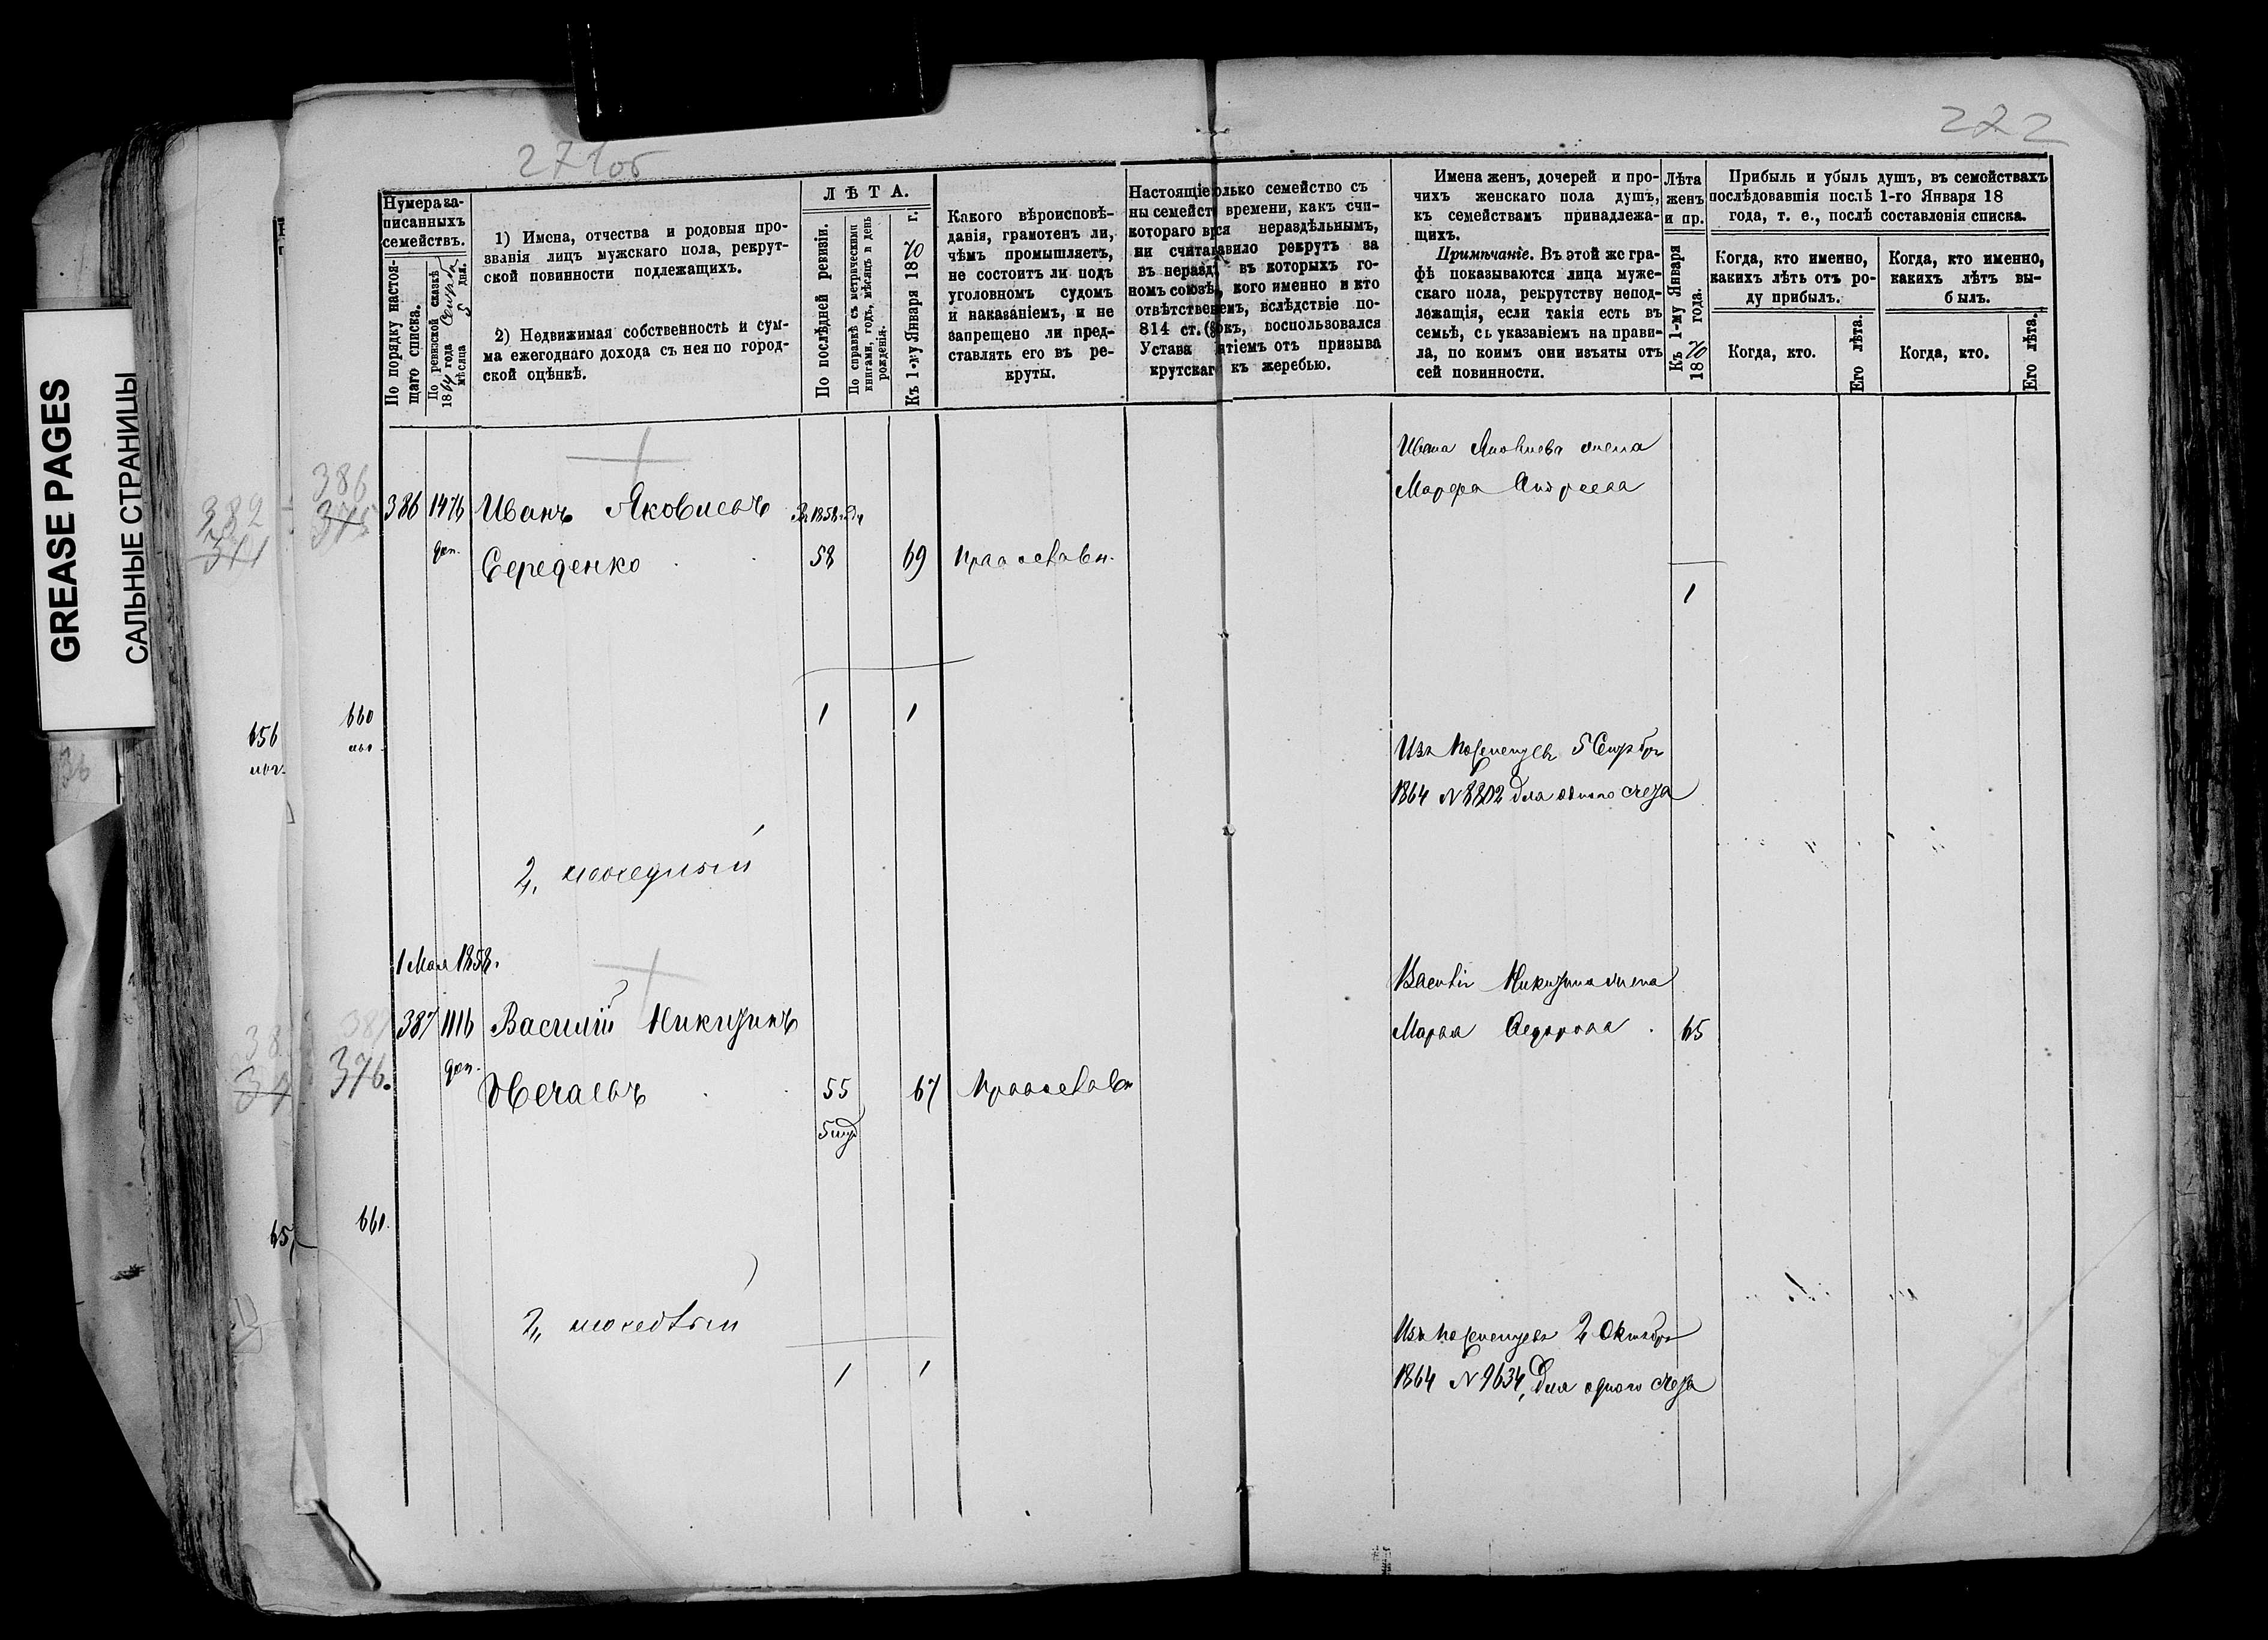 GREASE PAGES
САЛЬНЫЕ СТРАНИЦЫ
271об
272
Нумера за-
писанныхъ
семействъ.
По порядку настоя-
щаго списка.
По ревизской сказкѣ
1864 года
мѣсяца 5 дня.
1) Имена, отчества и родовыя про-
званія лицъ мужскаго пола, рекрут-
ской повинности подлежащихъ.
2) Недвижимая собственность и сум-
ма ежегоднаго дохода съ нея по город-
ской оцѣнкѣ.
ЛѢТА.
По послѣдней ревизіи.
По справкѣ съ метрическими
книгами, годъ, мѣсяцъ и день
рожденія.
Къ 1-му Января 1870 г.
Какого вѣроисповѣ-
данія, грамотенъ ли,
чѣмъ промышляетъ,
не состоитъ ли подъ
уголовнымъ судомъ
и наказаніемъ, и не
запрещено ли пред-
ставлять его въ ре-
круты.
Настоящіе олько семейство съ
ны семейст времени, какъ счи-
котораго в ся нераздѣльнымъ,
ни счита авило рекрутъ за
въ нераз въ которыхъ го-
номъ союзѣ, кого именно и кто
отвѣтстве емъ, вслѣдствіе по-
814 ст. ( окъ, воспользовался
Устава ятіемъ отъ призыва
крутскаг къ жеребью.
Имена женъ, дочерей и про-
чихъ женскаго пола душъ,
къ семействамъ принадлежа-
щихъ.
Примѣчаніе. Въ этой же гра-
фѣ показываются лица муже-
скаго пола, рекрутству непод-
лежащія, если такія есть въ
семьѣ, съ указаніемъ на прави-
ла, по коимъ они изъяты отъ
сей повинности.
Лѣта
женъ
и пр.
Къ 1-му Января
1870 года.
Прибыль и убыль душъ, въ семействахъ
послѣдовавшія послѣ 1-го Января 18
года, т. е., послѣ составленія списка.
Когда, кто именно,
какихъ лѣтъ отъ ро-
ду прибылъ.
Когда, кто именно,
какихъ лѣтъ вы-
былъ.
Когда, кто.
Его лѣта.
Когда, кто.
Его лѣта.
Ивана Яковлева жена
Марфа Андреева
382 386
371 375 386 1476 Иванъ Яковлевъ
доп. Середенко 58 69 Православн.
1
656 660 1 1
Изъ 5 Сентября
1864 N 8802 для одного счета
2,
1 Мая 1858.
Василія Никитина жена
387 387 1116 Василій Никитинъ Марья Федорова 65
376. доп. Нечаевъ 55 67 Православн
661
2,,
1 1
Изъ 2 Октября
1864 N 9634, для одного счета